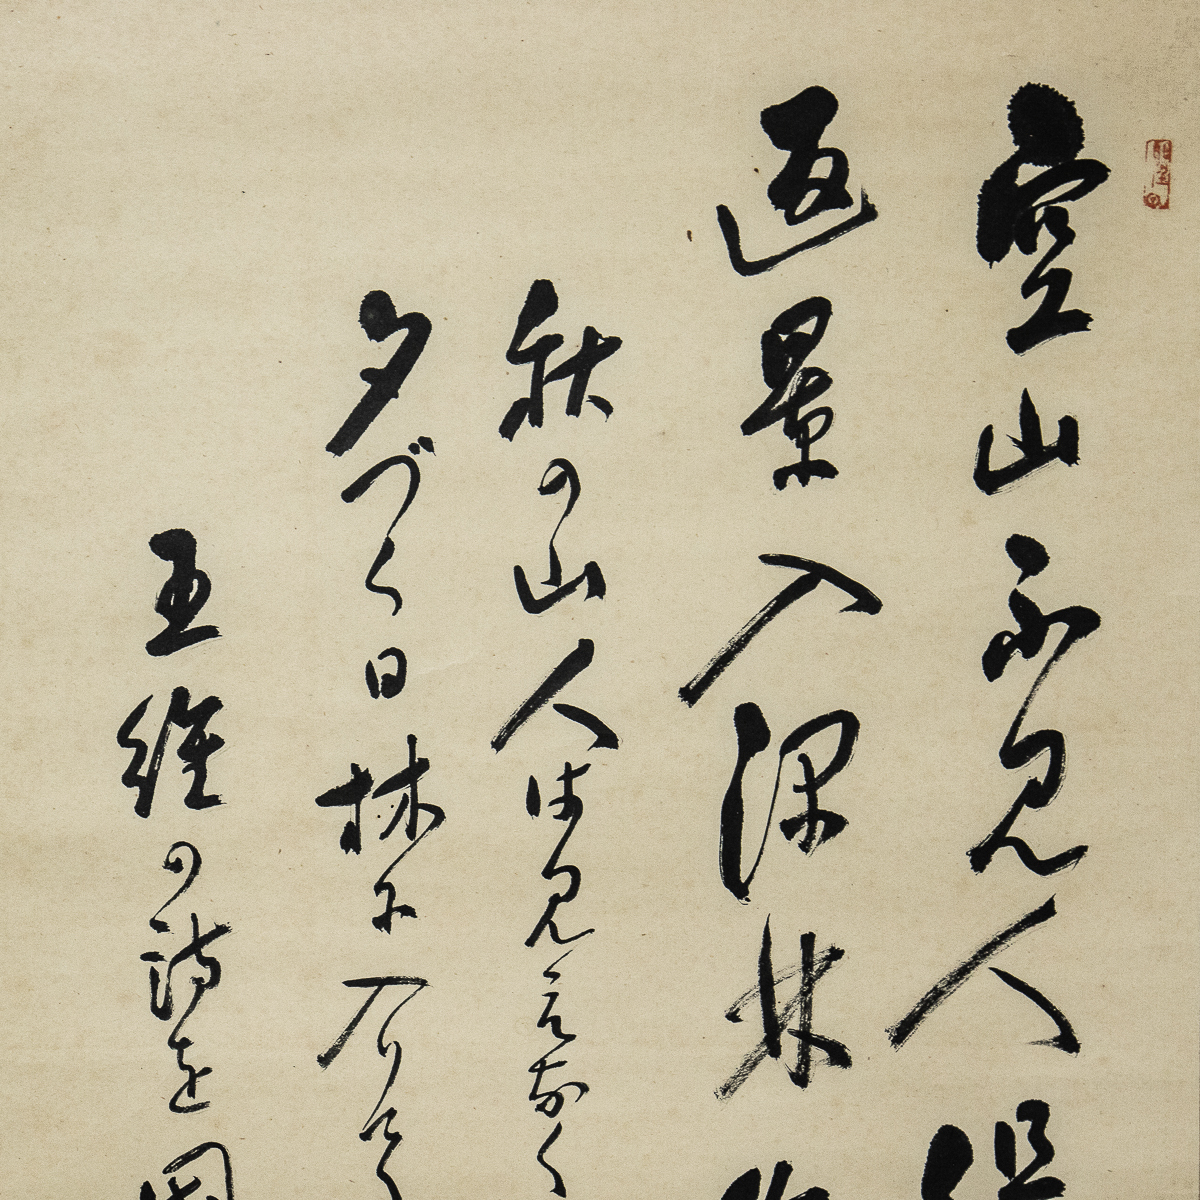 空山不見人但
返景入深林
秋の山人は見えなく
夕づく日林に入りて
王維の詩を国